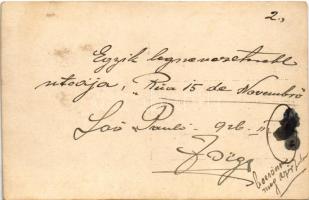 2.,
Egyik legnevezetesebb
utcája, "Rua 15 de Novembro
São Paulo 926
bocsánat